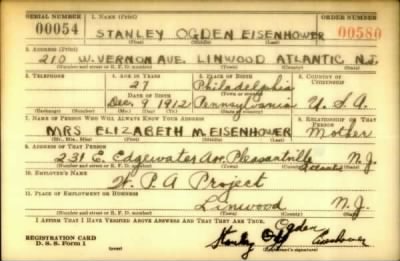 SERIAL NUMBER 1. NAME (Print) ORDER NUMBER
00054 STANLEY OGDEN EISENHOWER 00580
(First) (Middle) (Last)
2. ADDRESS (Print)
210 W. VERNON AVE. LINWOOD ATLANTIC N.J.
(Number and street or R. F. D. number) (Town) (County) (State)
3. TELEPHONE 4. AGE IN YEARS 5. PLACE OF BIRTH 6. COUNTRY OF CITIZENSHIP
27 Philadelphia
DATE OF BIRTH (Town or county)
Dec. 9 1912 Pennsylvania U.S.A.
(Exchange) (Number) (Mo.) (Day) (Yr.) (State or country)
7. NAME OF PERSON WHO WILL ALWAYS KNOW YOUR ADDRESS 8. RELATIONSHIP OF THAT PERSON
MRS ELIZABETH M. EISENHOWER Mother
(Mr., Mrs., Miss) (First) (Middle) (Last)
9. ADDRESS OF THAT PERSON
231 E. Edgewater Ave. Pleasantville Atlantic N.J.
(Number and street or R. F. D. number) (Town) (County) (State)
10. EMPLOYER'S NAME
W.P.A Project
11. PLACE OF EMPLOYMENT OR BUSINESS
Linwood N.J.
(Number and street or R. F. D. number) (Town) (County) (State)
I AFFIRM THAT I HAVE VERIFIED ABOVE ANSWERS AND THAT THEY ARE TRUE.
Ogden
REGISTRATION CARD Stanley Eisenhower
D. S. S. Form 1 (over) (Registrant's signature)